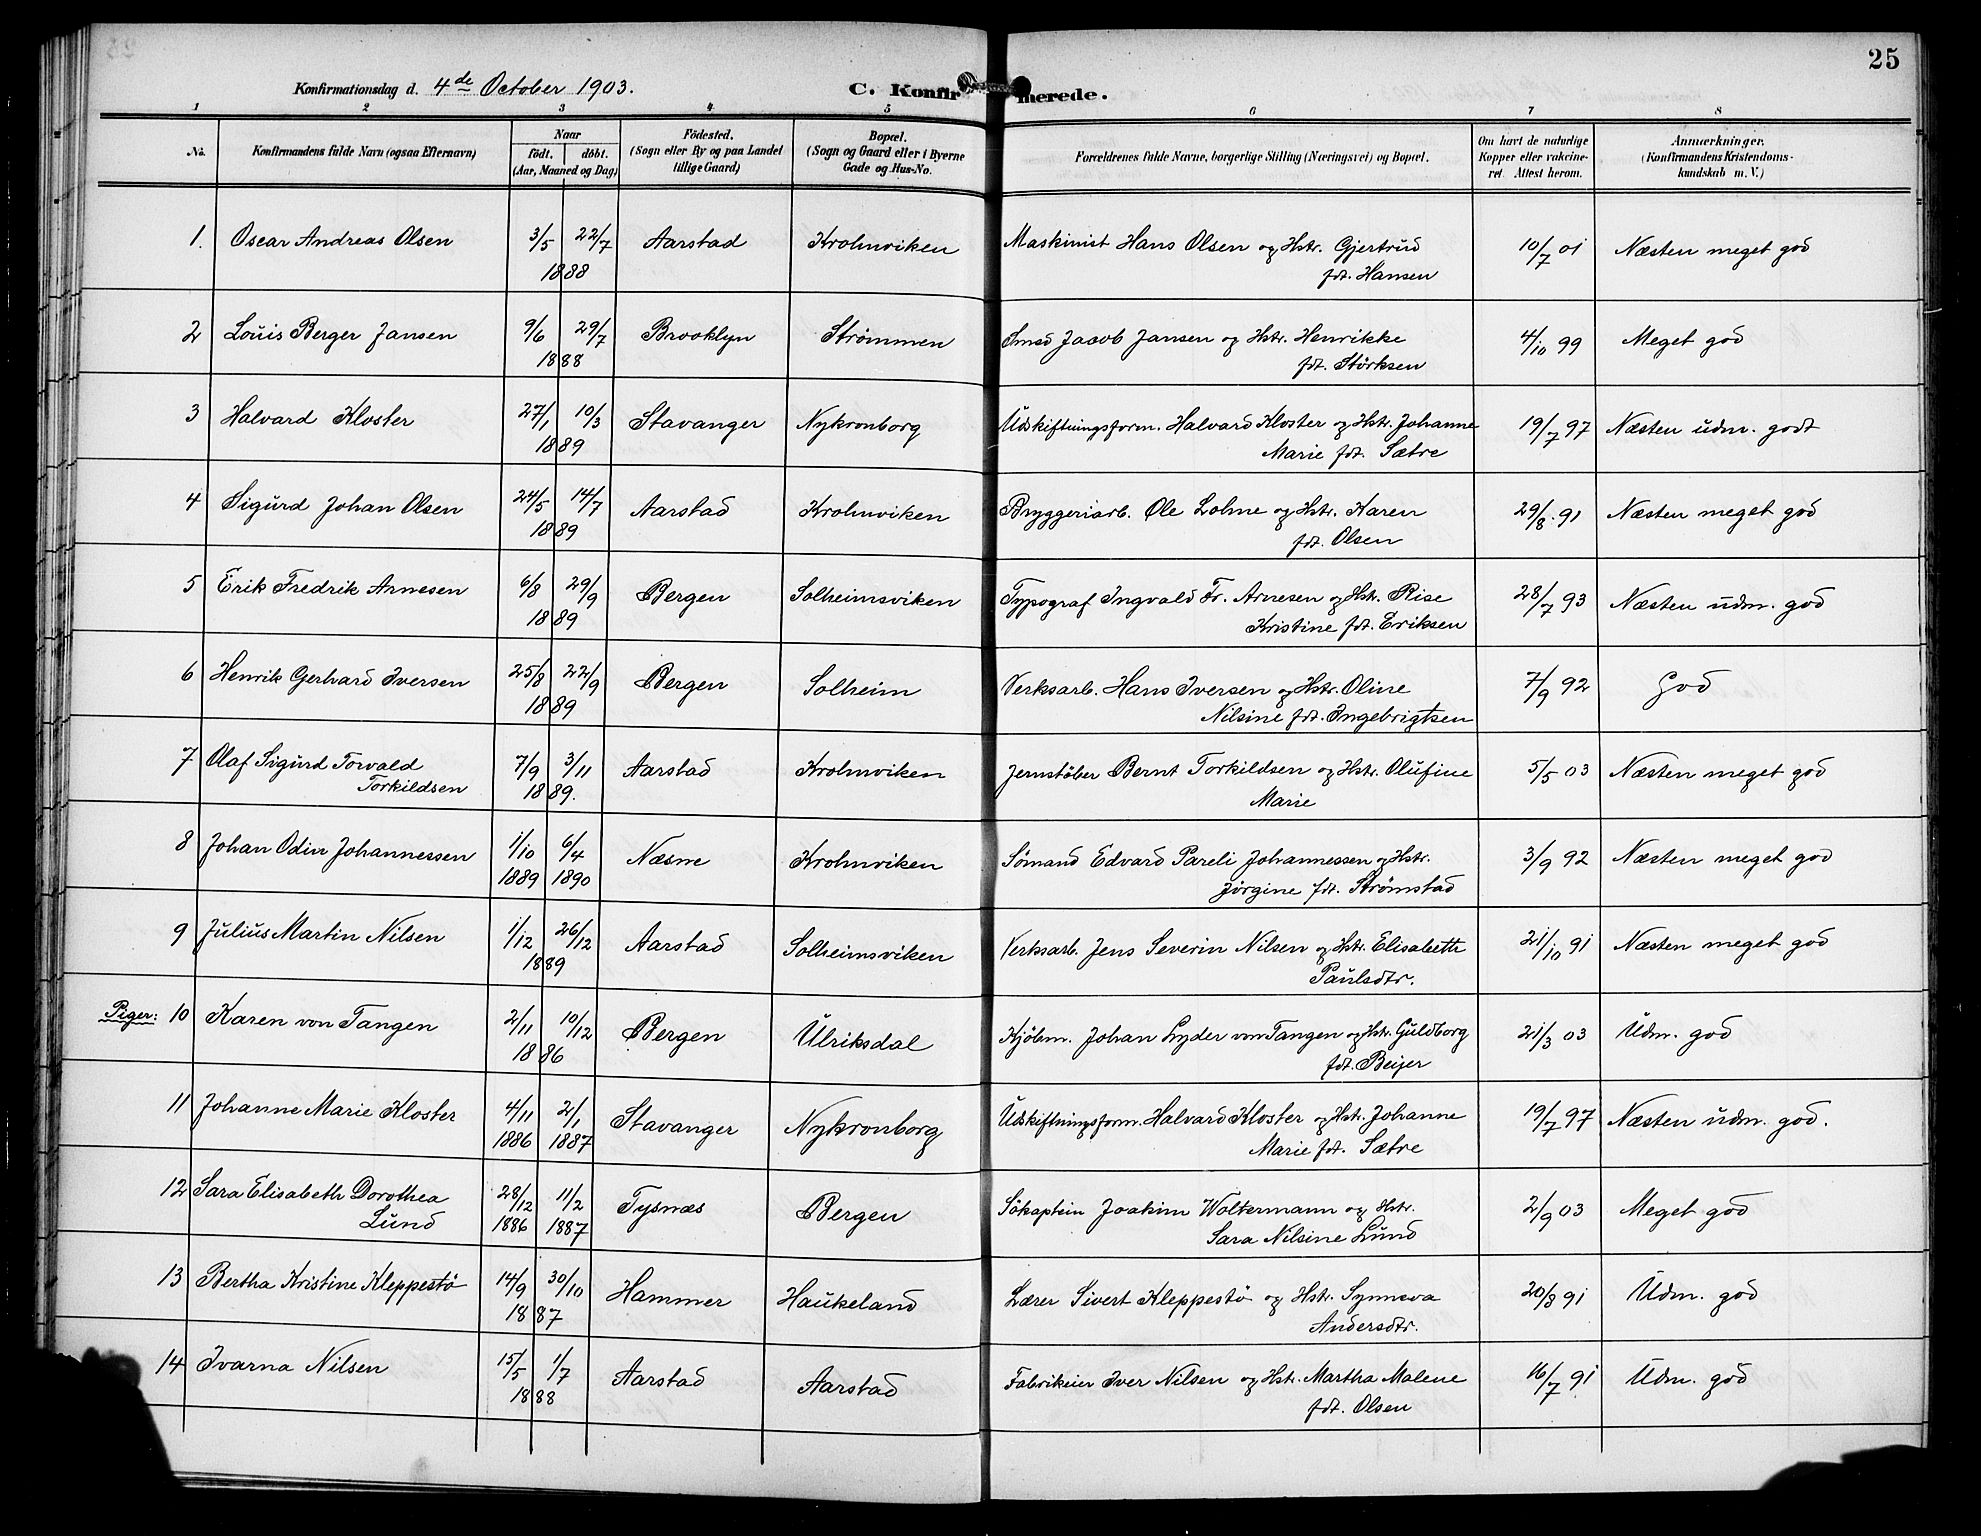 25
Konfirmationsdag d. 4de October 1903. C. Konfirmerede.
1 2 3 4 5 6 7 8
No. Konfirmandens fulde Navn (ogsaa Efternavn) Naar födt. döbt. (Aar, Maaned og Dag) Födested. (Sogn eller By og paa Landet tillige Gaard) Bopæl. (Sogn og Gaard eller i Byerne Gade og Hus-No. Forældrenes fulde Navne, borgerlige Stilling (Næringsvei) og Bopæl. Om havt de naturlige Kopper eller vakcineret. Attest herom. Anmærkninger. (Konfirmandens Kristendomskundskab m. V.)
1. Oscar Andreas Olsen 3/5 22/7 Aarstad Krohnviken Maskinist Hans Olsen og Hstr. Gjertrud 10/7 01 Næsten meget god
1888 fdt. Hansen
2 Louis Berger Jansen 9/6 29/7 Brooklyn Strømmen Smed Jacob Jansen og Hstr. Henrikke 4/10 99 Meget god
1888 fdt. Störksen
3 Halvard Kloster 27/1 10/3 Stavanger Nykronborg Udskiftningsform. Halvard Kloster og Hstr. Johanne 19/7 97 Næsten udm. godt
1889 Marie fdt. Sætre
4 Sigurd Johan Olsen 24/5 14/7 Aarstad Krohnviken Bryggeriarb. Ole Lohne og Hstr. Karen 29/8. 91 Næsten meget god
1889 fdt. Olsen
5 Erik Fredrik Arnesen 6/8 29/9 Bergen Solheimsviken Typograf Ingvald Fr. Arnesen og Hstr. Rise 28/7 93 Næsten udm. god
1889 Kristine fdt. Eriksen
6 Henrik Gerhard Iversen 25/8 22/9 Bergen Solheim Verksarb. Hans Iversen og Hstr. Oline 7/9 92 God
1889 Nilsine fdt. Ingebrigtsen
7 Olaf Sigurd Torvald 7/9 3/11 Aarstad Krohnviken Jernstöber Bernt Torkildsen og Hstr. Olufine 5/5 03 Næsten meget god
Torkildsen 1889. Marie
8 Johan Odin Johannessen 1/10 6/4 Næsne Krohnviken Sømand Edvard Pareli Johannessen og Hstr. 3/9 92 Næsten meget god
1889 1890 Jörgine fdt. Strømstad
9 Julius Martin Nilsen 1/12 26/12 Aarstad Solheimsviken Verksarb. Jens Severin Nilsen og Hstr. Elisabeth 21/10 91 Næsten meget god
1889 Paulsdtr.
Piger: 10 Karen von Tangen 2/11 10/12 Bergen Ulriksdal Kjöbm. Johan Lyder von Tangen og Hstr. Guldborg 21/3 03 Udm. god
1886 fdt. Beijer
11 Johanne Marie Kloster 4/11 2/1 Stavanger Nykronborg Udskiftningsform. Halvard Kloster og Hstr. Johanne 19/7 97 Næsten udm. god.
1886 1887 Marie fdt. Sætre
12 Sara Elisabeth Dorothea 28/12 11/2 Tysnæs Bergen Sökaptein Joakim Woltermann og Hstr. 2/9 03 Meget god
Lund 1886 1887 Sara Nilsine Lund
13 Bertha Kristine Kleppestö 14/9 30/10 Hammer Haukeland Lærer Sivert Kleppestö og Hstr. Synneva 20/8 91 Udm. god
1887 Andersdtr.
14 Ivarna Nilsen 15/5 1/7 Aarstad Aarstad Fabrikeier Iver Nilsen og Hstr. Martha Malene 16/7 91 Udm. god
1888 fdt. Olsen